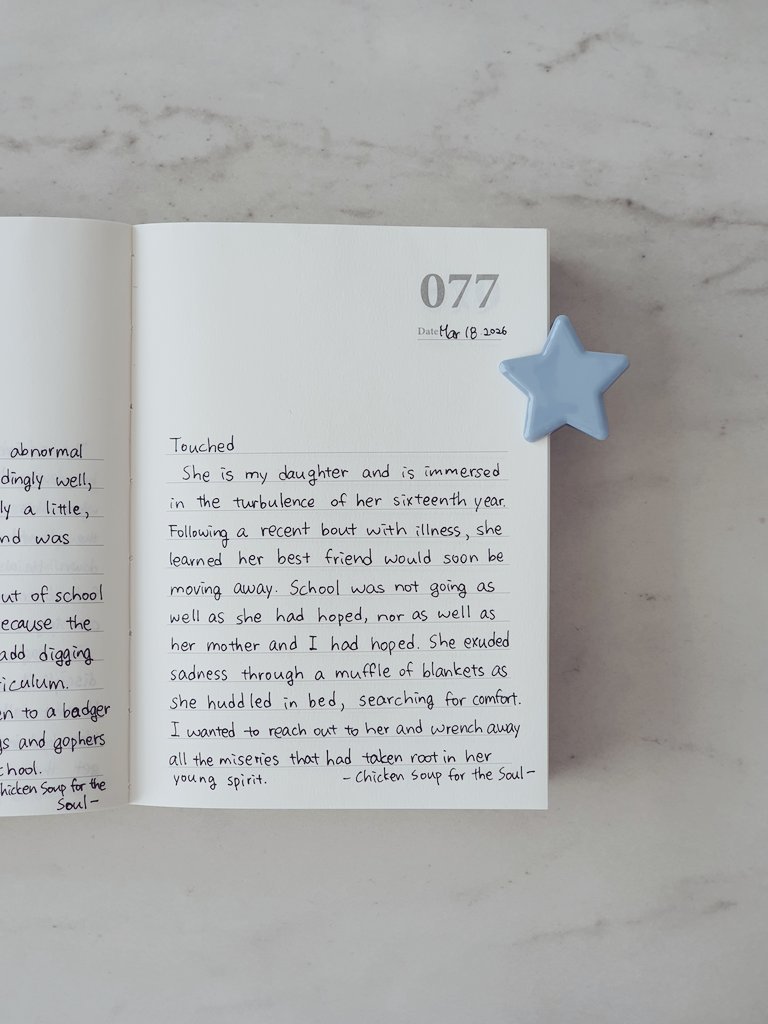 abnormal
dingly well,
ly a little,
nd was
ut of school
ecause the
add digging
iculum.
en to a badger
gs and gophers
chool.
hicken Soup for the
Soul-
077
Date Mar 18 2026
Touched
She is my daughter and is immersed
in the turbulence of her sixteenth year.
Following a recent bout with illness, she
learned her best friend would soon be
moving away. School was not going as
well as she had hoped, nor as well as
her mother and I had hoped. She exuded
sadness through a muffle of blankets as
she huddled in bed, searching for comfort.
I wanted to reach out to her and wrench away
all the miseries that had taken root in her
young spirit. - Chicken Soup for the Soul -